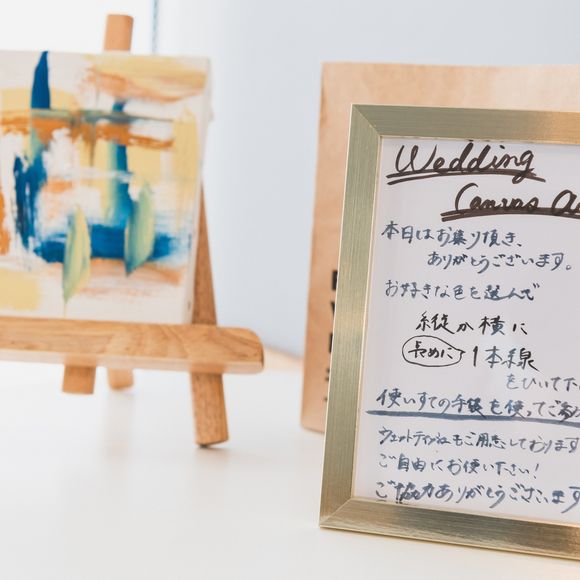 Wedding
Canvas A
本日はお集り頂き、
ありがとうございます。
お好きな色を選んで
縦か横に
長めに 1本線
をひいて
使いすての手袋を使ってご
ウェットティッシュもご用意しております
ご自由にお使いください!
ご協力ありがとうございます